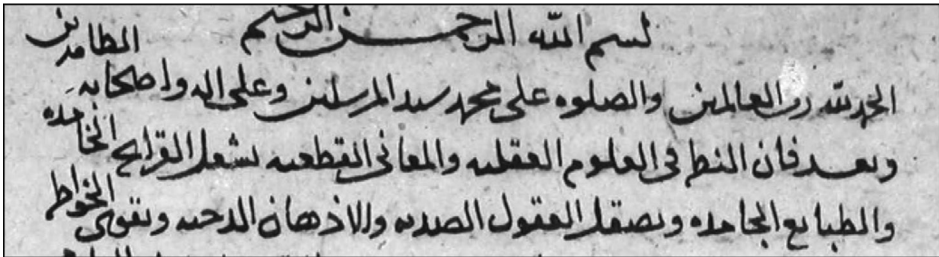 بسم الله الرحمن الرحيم
الحمد لله رب العالمين والصلوه على محمد سيد المرسلين وعلى اله واصحابه الطاهرين
وبعد فان النظر فى العلوم العقليه والمعانى القطعيه يشعل القرايح الخامده
والطبايع الجامده ويصقل العقول الصديه والاذهان الدجيه ويقوى الخواطر